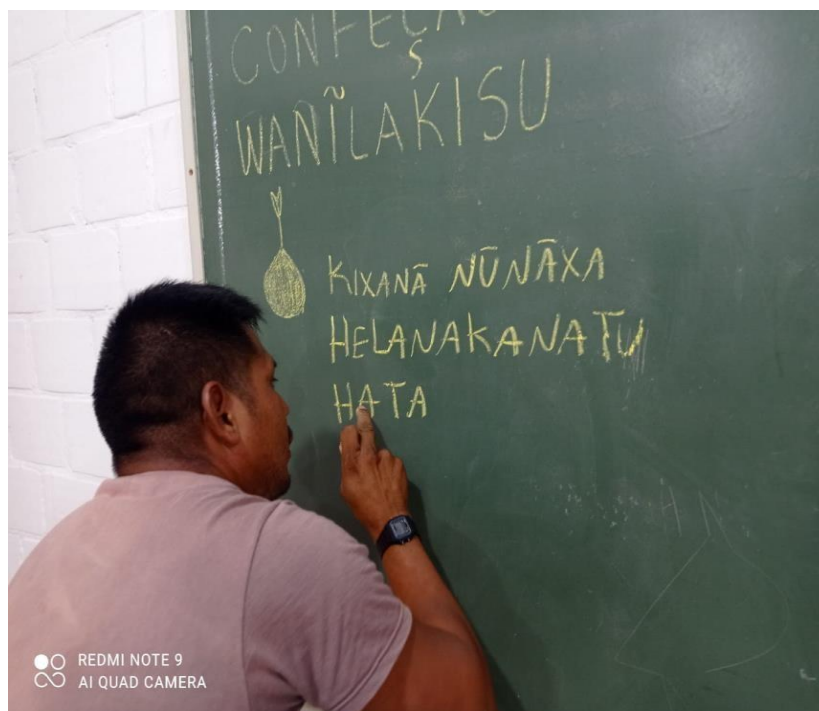 WANĨLAKISU
KIXANÃ NŨNÃXA
HELANAKANATU
HATA
REDMI NOTE 9
AI QUAD CAMERA